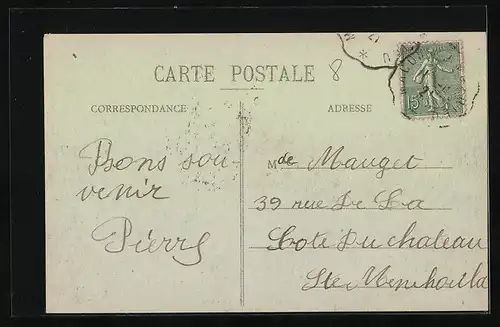 CARTE POSTALE 8
CORRESPONDANCE
ADRESSE
Bons sou-
venir
Pierre
Mde Mauget
39 rue De La
Cote Du chateau
Ste Menehould
15